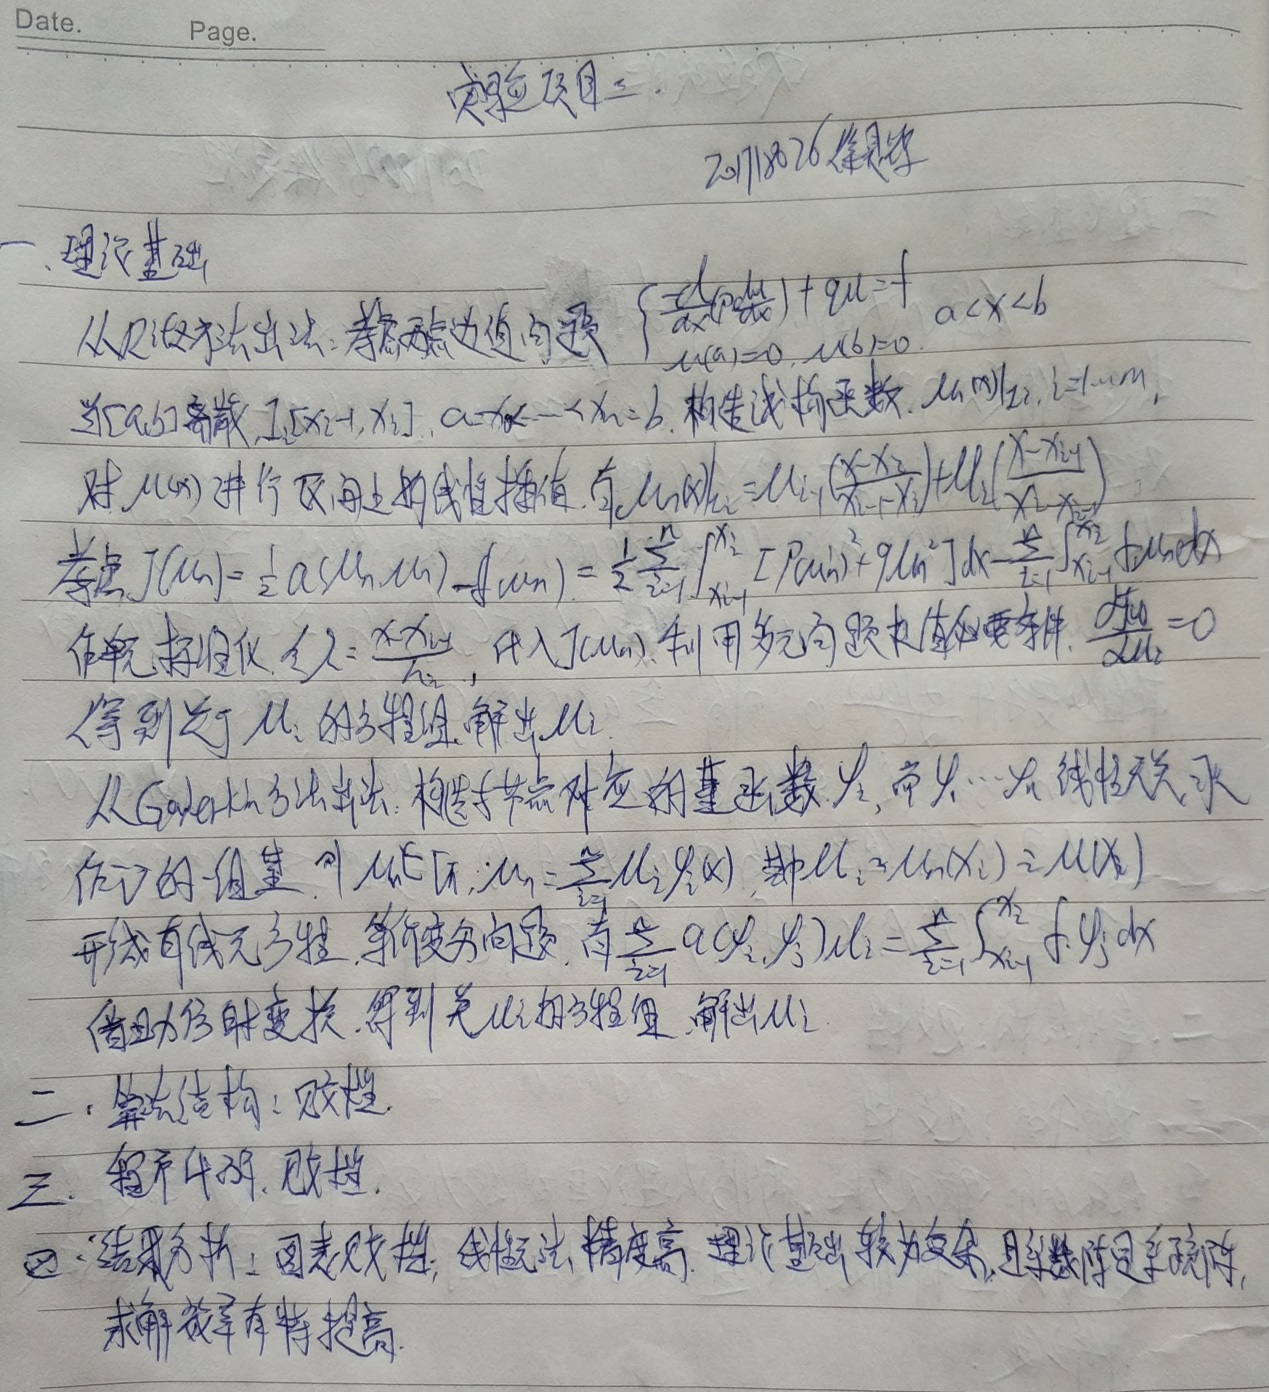 Date. Page.
实验项目二.
20171826
一、理论基础
从Ritz方法出发:考虑两点边值问题 { -d/dx(p du/dx) + qu = f a<x<b
u(a)=0, u(b)=0.
当[a,b]离散, Ii[xi-1, xi], a=x0<…<xn=b. 构造试探函数. un(x)|Ii, i=1…n,
对u(x)进行区间上的线性插值. 有un(x)|Ii = ui-1(x-xi/xi-1-xi)+ui(x-xi-1/xi-xi-1)
考虑J(un)=1/2 a(un,un)-f(un)=1/2 n∑i=1 ∫xi-1^xi [P(un')²+qun²]dx - n∑i=1 ∫xi-1^xi f·un dx
作单元标准化. 令λ=x-xi-1/hi, 代入J(un). 利用多元问题极值必要条件. =0
得到关于ui的方程组,解出ui.
从Galerkin方法出发. 构造节点对应的基函数φi, 而φ1…φn线性无关,
作 的一组基. 则 un=n∑i=1 uiφi(x), 其中ui=un(xi)≈u(xi)
形成有线元方程. 等价变分问题. 有n∑i=1 a(φi,φj)ui = n∑i=1 ∫xi-1^xi f·φj dx
借助仿射变换. 得到关ui的方程组, 解出ui.
二. 算法结构: 见文档.
三. 程序代码. 见文档.
四. 结果分析: 图表见文档; 线性元法精度高. 理论基础较为复杂, 且系数阵是系疏阵,
求解效率有待提高.